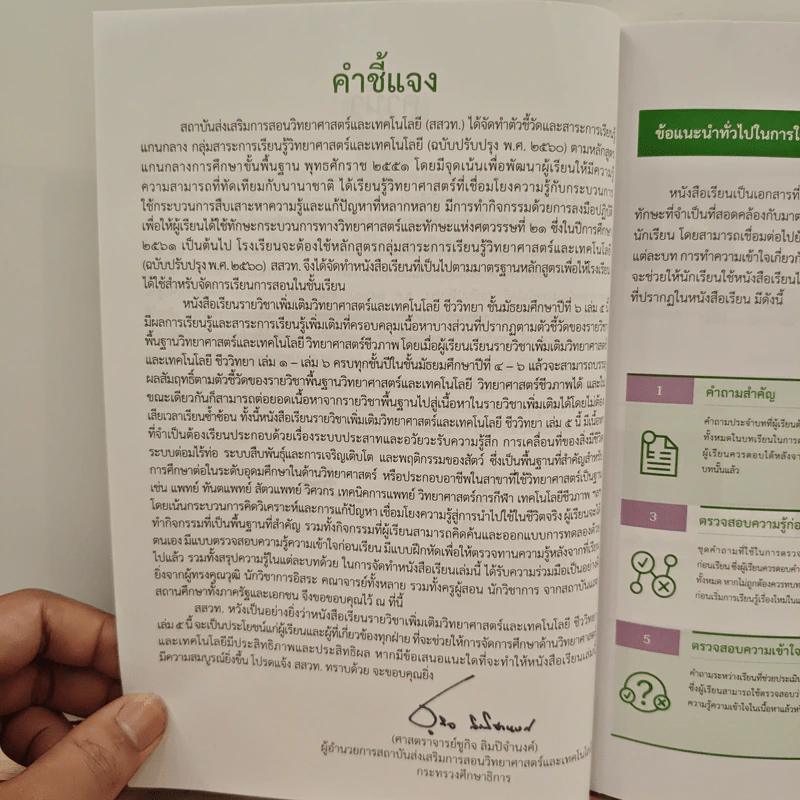 คำชี้แจง
สถาบันส่งเสริมการสอนวิทยาศาสตร์และเทคโนโลยี (สสวท.) ได้จัดทำตัวชี้วัดและสาระการเรียนรู้
แกนกลาง กลุ่มสาระการเรียนรู้วิทยาศาสตร์ (ฉบับปรับปรุง พ.ศ. ๒๕๖๐) ตามหลักสูตร
แกนกลางการศึกษาขั้นพื้นฐาน พุทธศักราช ๒๕๕๑ โดยมีจุดเน้นเพื่อพัฒนาผู้เรียนให้มีความรู้
ความสามารถที่ทัดเทียมกับนานาชาติ ได้เรียนรู้วิทยาศาสตร์ที่เชื่อมโยงความรู้กับกระบวนการ
ใช้กระบวนการสืบเสาะหาความรู้และแก้ปัญหาที่หลากหลาย มีการทำกิจกรรมด้วยการลงมือปฏิบัติ
เพื่อให้ผู้เรียนได้ใช้ทักษะกระบวนการทางวิทยาศาสตร์และทักษะแห่งศตวรรษที่ ๒๑ ซึ่งในปีการศึกษา
๒๕๖๑ เป็นต้นไป โรงเรียนจะต้องใช้หลักสูตรกลุ่มสาระการเรียนรู้วิทยาศาสตร์และเทคโนโลยี
(ฉบับปรับปรุง พ.ศ. ๒๕๖๐) สสวท. จึงได้จัดทำหนังสือเรียนที่เป็นไปตามมาตรฐานหลักสูตรเพื่อให้โรงเรียน
ได้ใช้สำหรับจัดการเรียนการสอนในชั้นเรียน
หนังสือเรียนรายวิชาเพิ่มเติมวิทยาศาสตร์และเทคโนโลยี ชีววิทยา ชั้นมัธยมศึกษาปีที่ ๖ เล่ม ๕ นี้
มีผลการเรียนรู้และสาระการเรียนรู้เพิ่มเติมที่ครอบคลุมเนื้อหาบางส่วนที่ปรากฏตามตัวชี้วัดของรายวิชา
พื้นฐานวิทยาศาสตร์และเทคโนโลยี วิทยาศาสตร์ชีวภาพ โดยเมื่อผู้เรียนเรียนรายวิชาเพิ่มเติมวิทยาศาสตร์
และเทคโนโลยี ชีววิทยา เล่ม ๑ – เล่ม ๖ ครบทุกชั้นปีในชั้นมัธยมศึกษาปีที่ ๔ – ๖ แล้วจะสามารถบรร
ผลสัมฤทธิ์ตามตัวชี้วัดของรายวิชาพื้นฐานวิทยาศาสตร์และเทคโนโลยี วิทยาศาสตร์ชีวภาพได้ และใน
ขณะเดียวกันก็สามารถต่อยอดเนื้อหาจากรายวิชาพื้นฐานไปสู่เนื้อหาในรายวิชาเพิ่มเติมได้โดยไม่ต้อง
เสียเวลาเรียนซ้ำซ้อน ทั้งนี้หนังสือเรียนรายวิชาเพิ่มเติมวิทยาศาสตร์และเทคโนโลยี ชีววิทยา เล่ม ๕ นี้ มีเนื้อหา
ที่จำเป็นต้องเรียนประกอบด้วยเรื่องระบบประสาทและอวัยวะรับความรู้สึก การเคลื่อนที่ของสิ่งมีชีวิต
ระบบต่อมไร้ท่อ ระบบสืบพันธุ์และการเจริญเติบโต และพฤติกรรมของสัตว์ ซึ่งเป็นพื้นฐานที่สำคัญสำหรับ
การศึกษาต่อในระดับอุดมศึกษาในด้านวิทยาศาสตร์ หรือประกอบอาชีพในสาขาที่ใช้วิทยาศาสตร์เป็นฐาน
เช่น แพทย์ ทันตแพทย์ สัตวแพทย์ วิศวกร เทคนิคการแพทย์ วิทยาศาสตร์การกีฬา เทคโนโลยีชีวภาพ ฯลฯ
โดยเน้นกระบวนการคิดวิเคราะห์และการแก้ปัญหา เชื่อมโยงความรู้สู่การนำไปใช้ในชีวิตจริง ผู้เรียนจะได้
ทำกิจกรรมที่เป็นพื้นฐานที่สำคัญ รวมทั้งกิจกรรมที่ผู้เรียนสามารถคิดค้นและออกแบบการทดลองด้วย
ตนเอง มีแบบตรวจสอบความรู้ความเข้าใจก่อนเรียน มีแบบฝึกหัดเพื่อให้ตรวจทานความรู้หลังจากที่เรียน
ไปแล้ว รวมทั้งสรุปความรู้ในแต่ละบทด้วย ในการจัดทำหนังสือเรียนเล่มนี้ ได้รับความร่วมมือเป็นอย่างดี
ยิ่งจากผู้ทรงคุณวุฒิ นักวิชาการอิสระ คณาจารย์ทั้งหลาย รวมทั้งครูผู้สอน นักวิชาการ จากสถาบันและ
สถานศึกษาทั้งภาครัฐและเอกชน จึงขอขอบคุณไว้ ณ ที่นี้
สสวท. หวังเป็นอย่างยิ่งว่าหนังสือเรียนรายวิชาเพิ่มเติมวิทยาศาสตร์และเทคโนโลยี ชีววิทยา
เล่ม ๕ นี้ จะเป็นประโยชน์แก่ผู้เรียนและผู้ที่เกี่ยวข้องทุกฝ่าย ที่จะช่วยให้การจัดการศึกษาด้านวิทยาศาสตร์
และเทคโนโลยีมีประสิทธิภาพและประสิทธิผล หากมีข้อเสนอแนะใดที่จะทำให้หนังสือเรียนเล่มนี้
มีความสมบูรณ์ยิ่งขึ้น โปรดแจ้ง สสวท. ทราบด้วย จะขอบคุณยิ่ง
(ศาสตราจารย์ชูกิจ ลิมปิจำนงค์)
ผู้อำนวยการสถาบันส่งเสริมการสอนวิทยาศาสตร์และเทคโนโลยี
กระทรวงศึกษาธิการ
ข้อแนะนำทั่วไปในการใ
หนังสือเรียนเป็นเอกสารที่
ทักษะที่จำเป็นที่สอดคล้องกับมาต
นักเรียน โดยสามารถเชื่อมต่อไปยั
แต่ละบท การทำความเข้าใจเกี่ยวกั
จะช่วยให้นักเรียนใช้หนังสือเรียนไ
ที่ปรากฏในหนังสือเรียน มีดังนี้
1
คำถามสำคัญ
คำถามประจำบทที่ผู้เรียนต้
ทั้งหมดในบทเรียนในการต
ผู้เรียนควรตอบได้หลังจา
บทนั้นแล้ว
3
ตรวจสอบความรู้ก่อ
ชุดคำถามที่ใช้ในการตรวจ
ก่อนเรียน ซึ่งผู้เรียนควรตอบคำ
ทั้งหมด หากไม่ถูกต้องควรทบท
ก่อนเริ่มการเรียนรู้เรื่องใหม่ใน
5
ตรวจสอบความเข้าใ
คำถามระหว่างเรียนที่ช่วยประเมิน
ซึ่งผู้เรียนสามารถใช้ตรวจสอบว่
ความรู้ความเข้าใจในเนื้อหาแล้วหรื